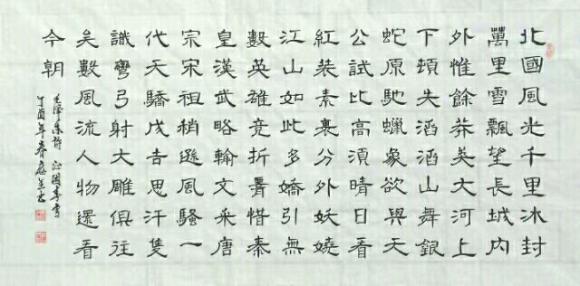 北國風光千里冰封
萬里雪飄望長城內
外惟餘莽莽大河上
下頓失滔滔山舞銀
蛇原馳蠟象欲與天
公試比高須晴日看
紅裝素裹分外妖嬈
江山如此多嬌引無
數英雄竞折惜秦
皇漢武略輸文采唐
宗宋祖稍遜風騷一
代天驕成吉思汗隻
識彎弓射大雕俱往
矣數風流人物還看
今朝
毛澤東詞 沁園春雪
丁酉年春